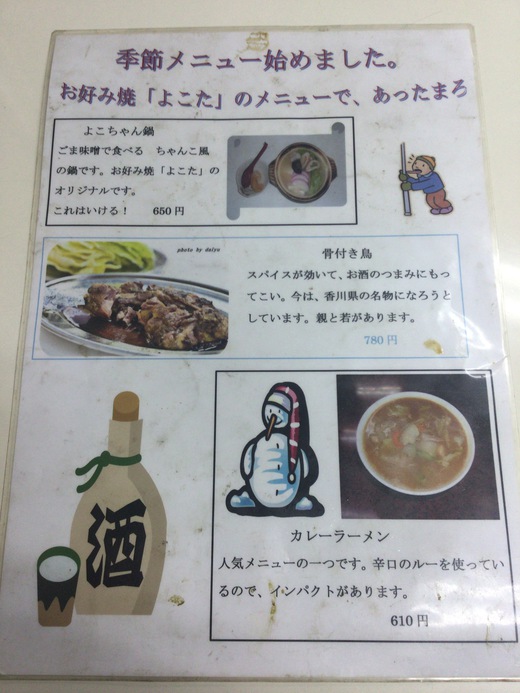 季節メニュー始めました。
お好み焼「よこた」のメニューで、あったまろ
よこちゃん鍋
ごま味噌で食べる ちゃんこ風
の鍋です。お好み焼「よこた」の
オリジナルです。
これはいける! 650円
photo by daiyu
骨付き鳥
スパイスが効いて、お酒のつまみにもっ
てこい。今は、香川県の名物になろうと
しています。親と若があります。
780円
酒
カレーラーメン
人気メニューの一つです。辛口のルーを使ってい
るので、インパクトがあります。
610円